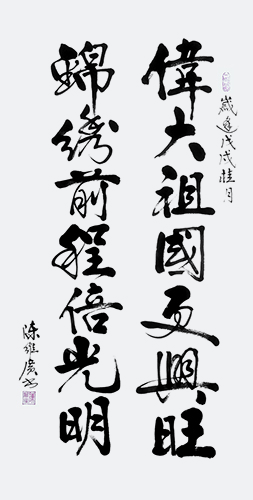 歲逢戊戌桂月
偉大祖國更興旺
錦绣前程倍光明
陈維廣书